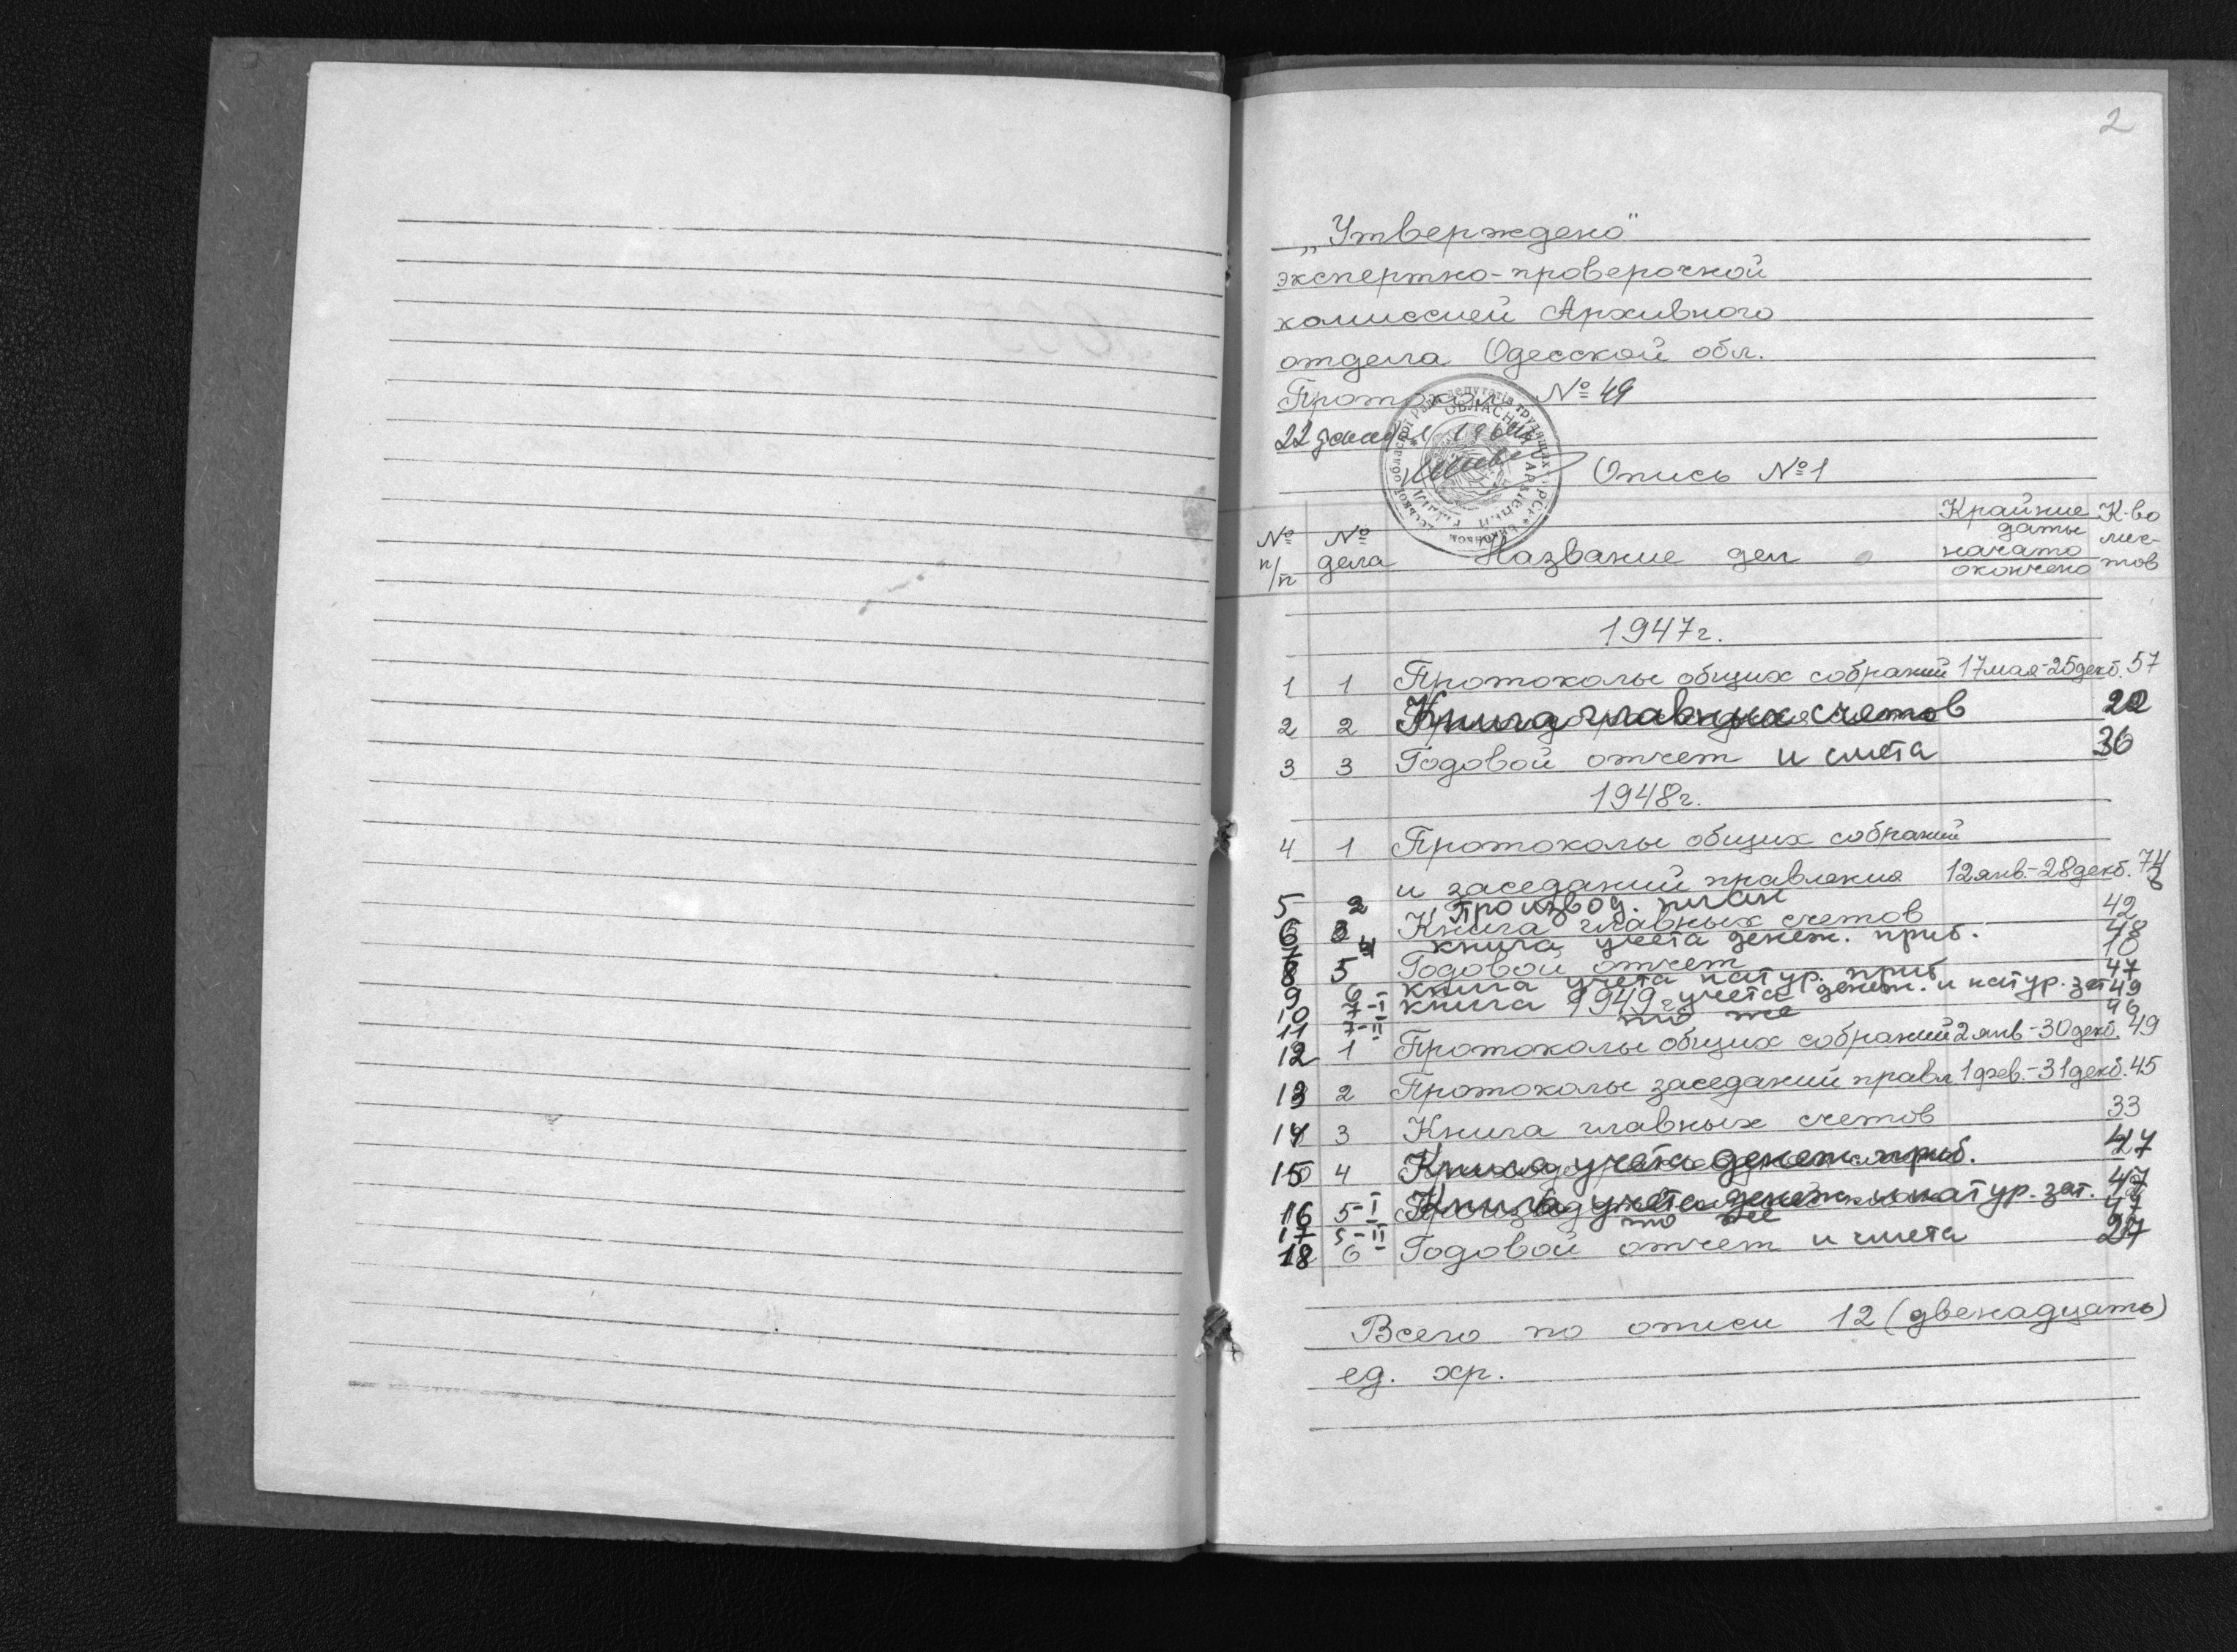 2
„Утверждено"
экспертно-проверочной
комиссией Архивного
отдела Одесской обл.
Протокол № 49
22 декабря 196
Опись № 1
№ п/п № дела Название дел Крайние даты начато окончено К-во листов
1947 г.
1 1 Протоколы общих собраний 17 мая-25 дек. 57
2 2 Книга главных счетов 20
3 3 Годовой отчет и смета 36
1948 г.
4 1 Протоколы общих собраний
и заседаний правления 12 янв.-28 дек. 74
5 2 Произвол. план 6
6 3 Книга главных счетов 42
7 4 книга учета денеж. приб. 48
8 5 Годовой отчет 10
9 6 книга учета натур. приб. 47
10 7-I книга учета денеж. и натур. зат 49
1949 г.
11 7-II то же 46
12 1 Протоколы общих собраний 2 янв-30 дек. 49
13 2 Протоколы заседаний правл. 1 фев.-31 дек. 45
14 3 Книга главных счетов 33
15 4 Книга учета денеж приб. 47
16 5-I Книга учета денеж и натур. зат. 47
17 5-II то же 47
18 6 Годовой отчет и смета 27
Всего по описи 12 (двенадцать)
ед. хр.